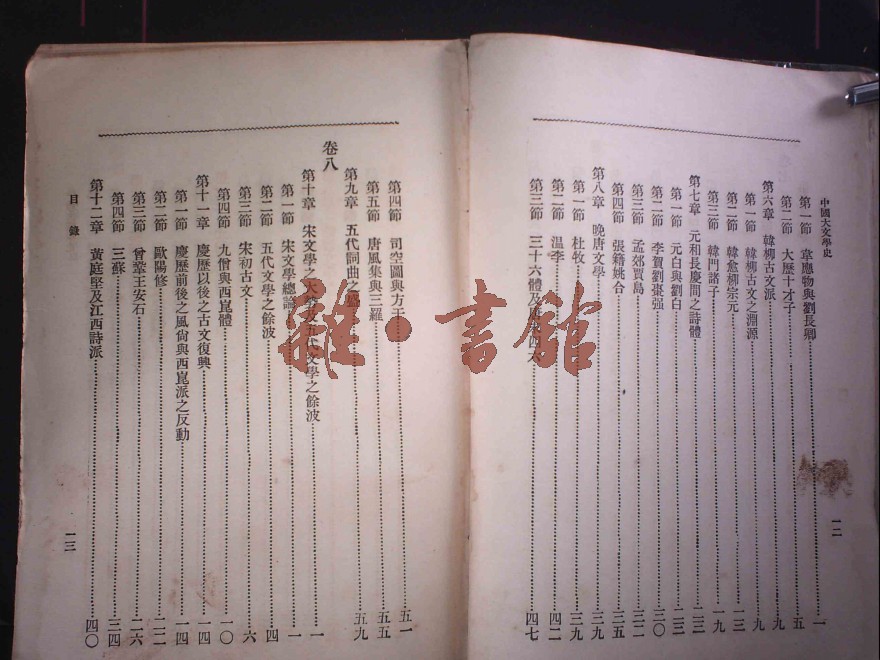 中國大文學史
第一節 韋應物與劉長卿 一
第二節 大歷十才子 五
第六章 韓柳古文派 九
第一節 韓柳古文之淵源 九
第二節 韓愈柳宗元 一三
第三節 韓門諸子 一九
第七章 元和長慶間之詩體 二三
第一節 元白與劉白 二三
第二節 李賀劉棗强 三〇
第三節 孟郊賈島 三二
第四節 張籍姚合 三五
第八章 晚唐文學 三九
第一節 杜牧 三九
第二節 温李 四二
第三節 三十六體及 四六 四七
一二
第四節 司空圖與方干 五一
第五節 唐風集與三羅 五五
第九章 五代詞曲之 五九
卷八
第十章 宋文學之大勢及五代文學之餘波 一
第一節 宋文學總論 一
第二節 五代文學之餘波 四
第三節 宋初古文 六
第四節 九僧與西崑體 一〇
第十一章 慶歷以後之古文復興 一四
第一節 慶歷前後之風尙與西崑派之反動 一四
第二節 歐陽修 二二
第三節 曾鞏王安石 二六
第四節 三蘇 三四
第十二章 黃庭堅及江西詩派 四〇
目錄
一三
雜·書館